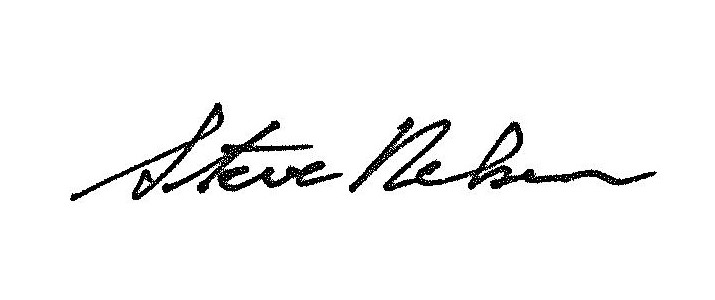 Steve Nelson